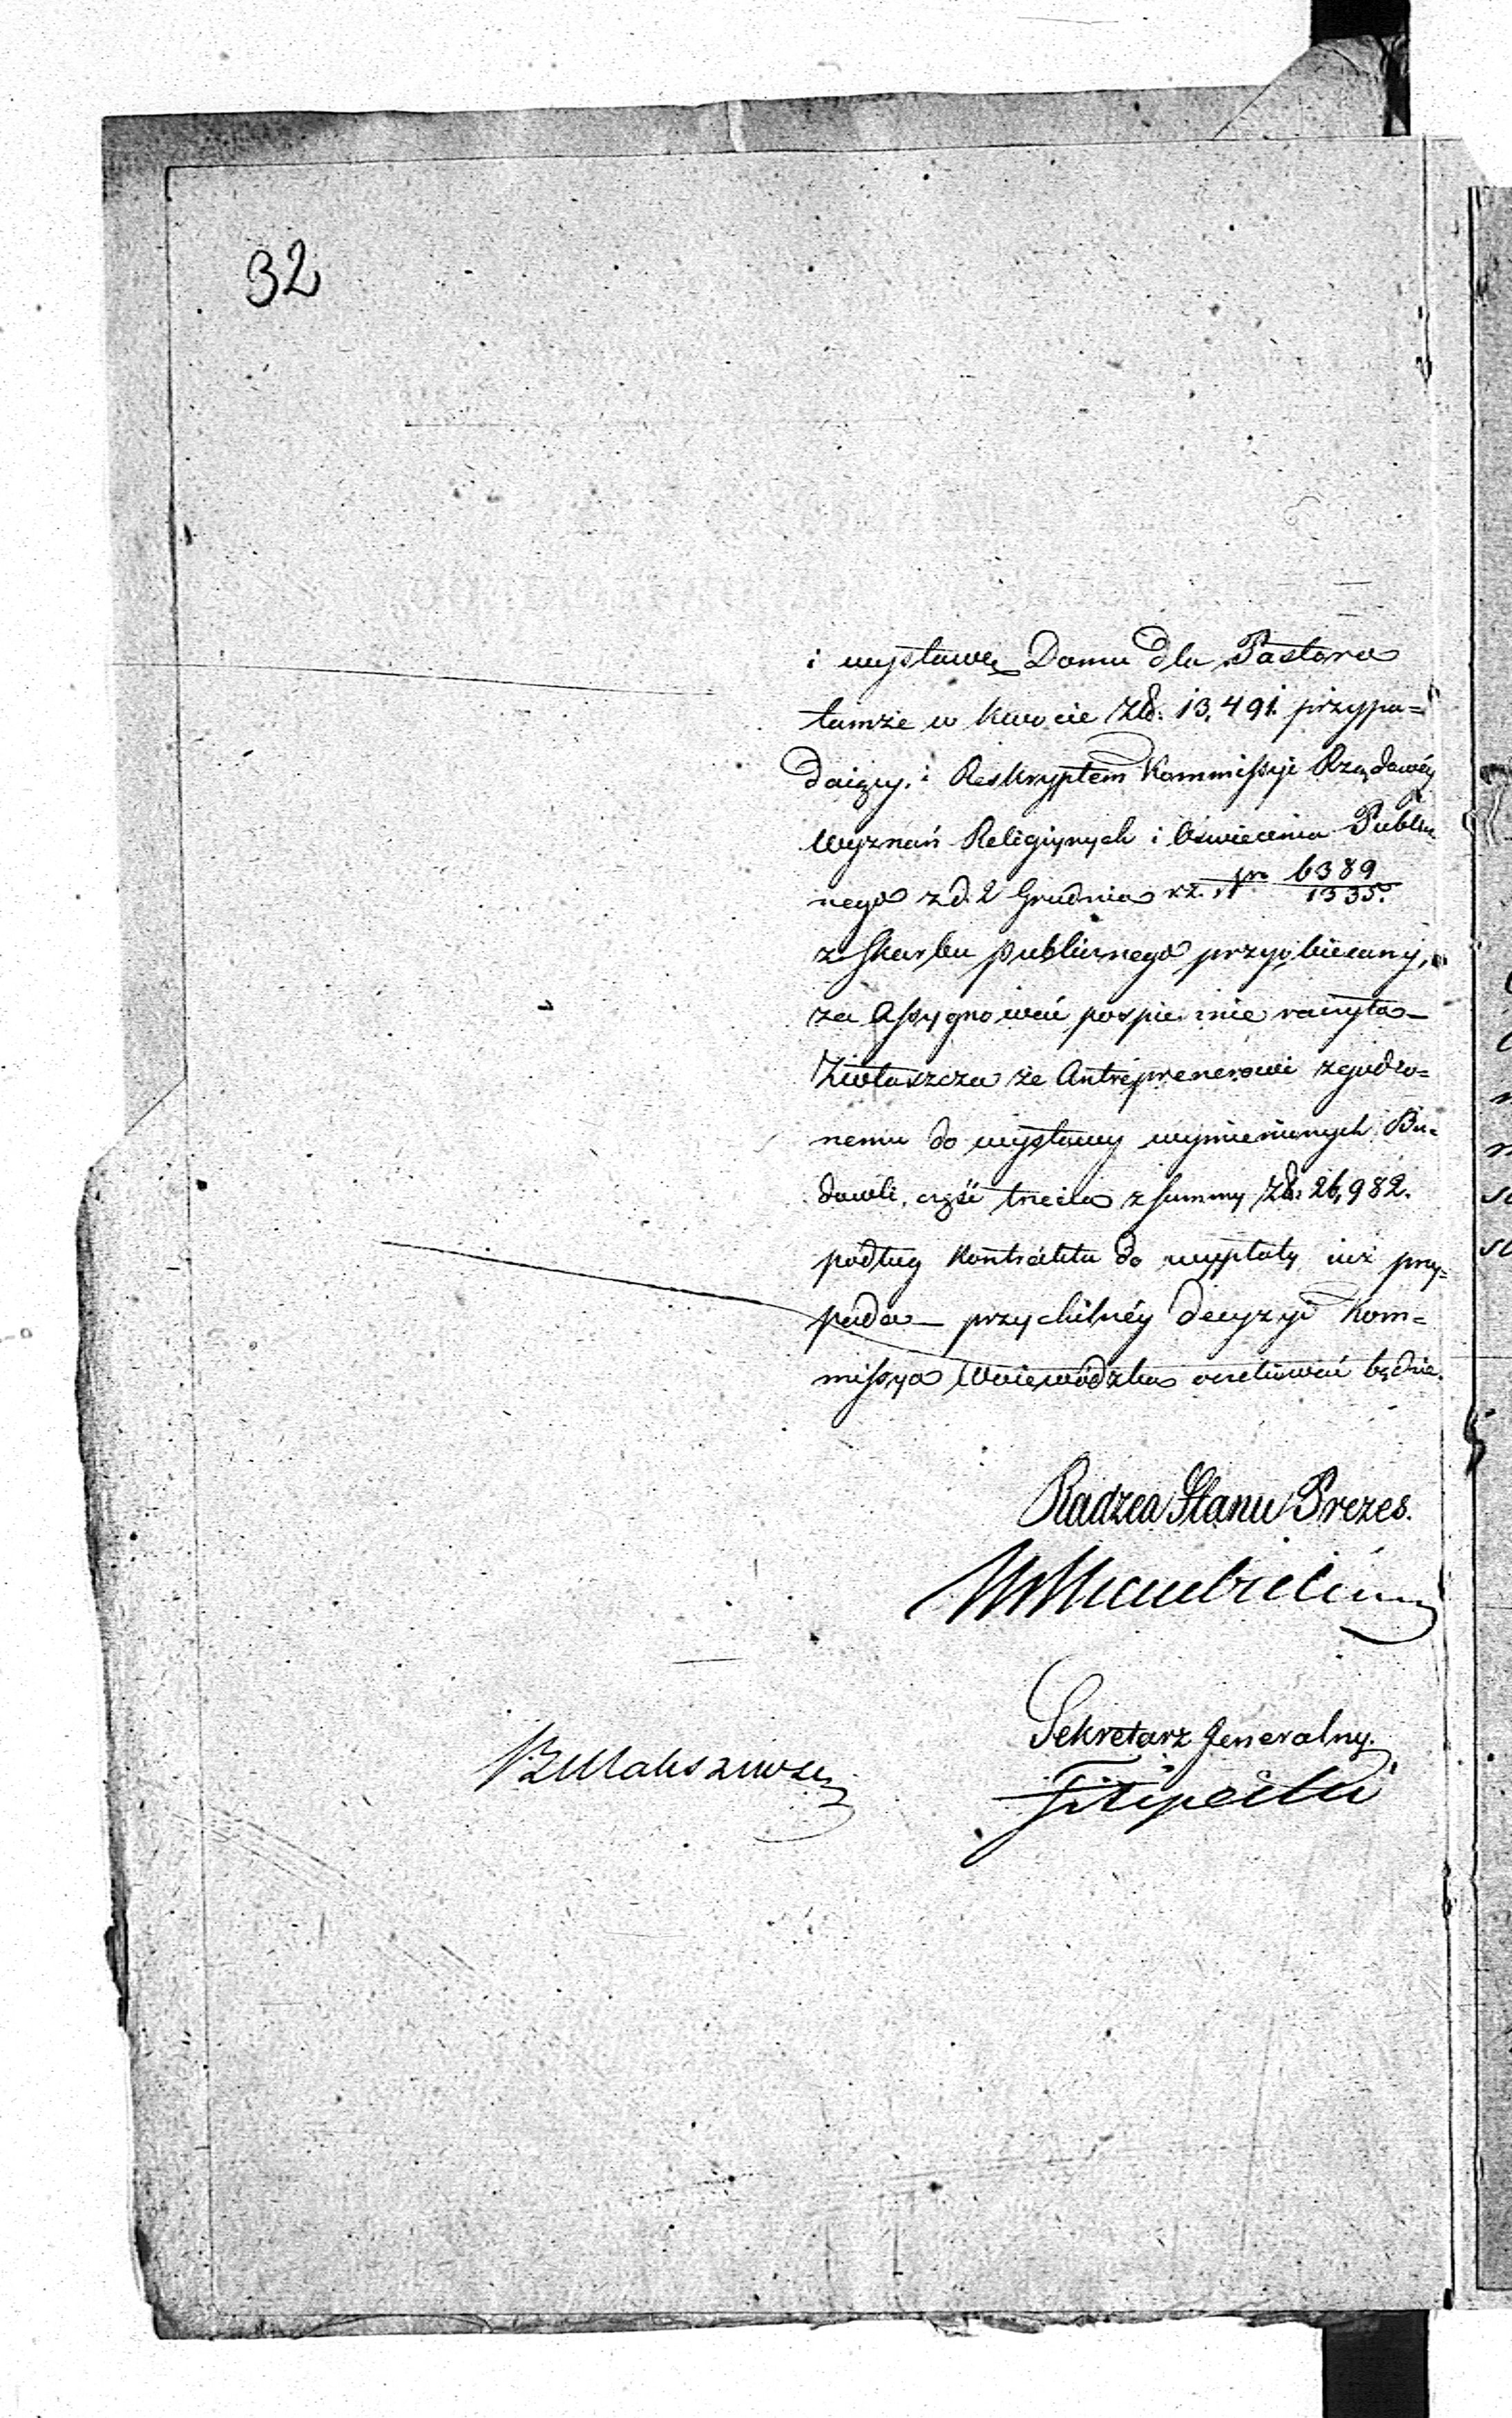 32
i wystawę Domu dla Pastora
tamże w kwocie Zł: 13,491. przypa=
daiący, i Reskryptem Kommissyi Rządowéy
Wyznań Religiynych i Oświecenia Publicz
nego z d. 2 Grudnia rz. N 6389/1335.
z Skarbu publicznego przyobiecany,
za Assygnować pospiesznie raczyła—
Zwłaszcza że Antreprenerowi zgodzo=
nemu do wystawy wymienionych Bu=
dowli, część trzecia z summy Zł: 26,982.
podług Kontraktu do wypłaty iuż przy=
pada— przychilnéy decyzyi Kom=
missya Woiewódzka oczekiwać będzie.
Radzca Stanu Prezes.
Sekretarz Jeneralny.
Filipecki